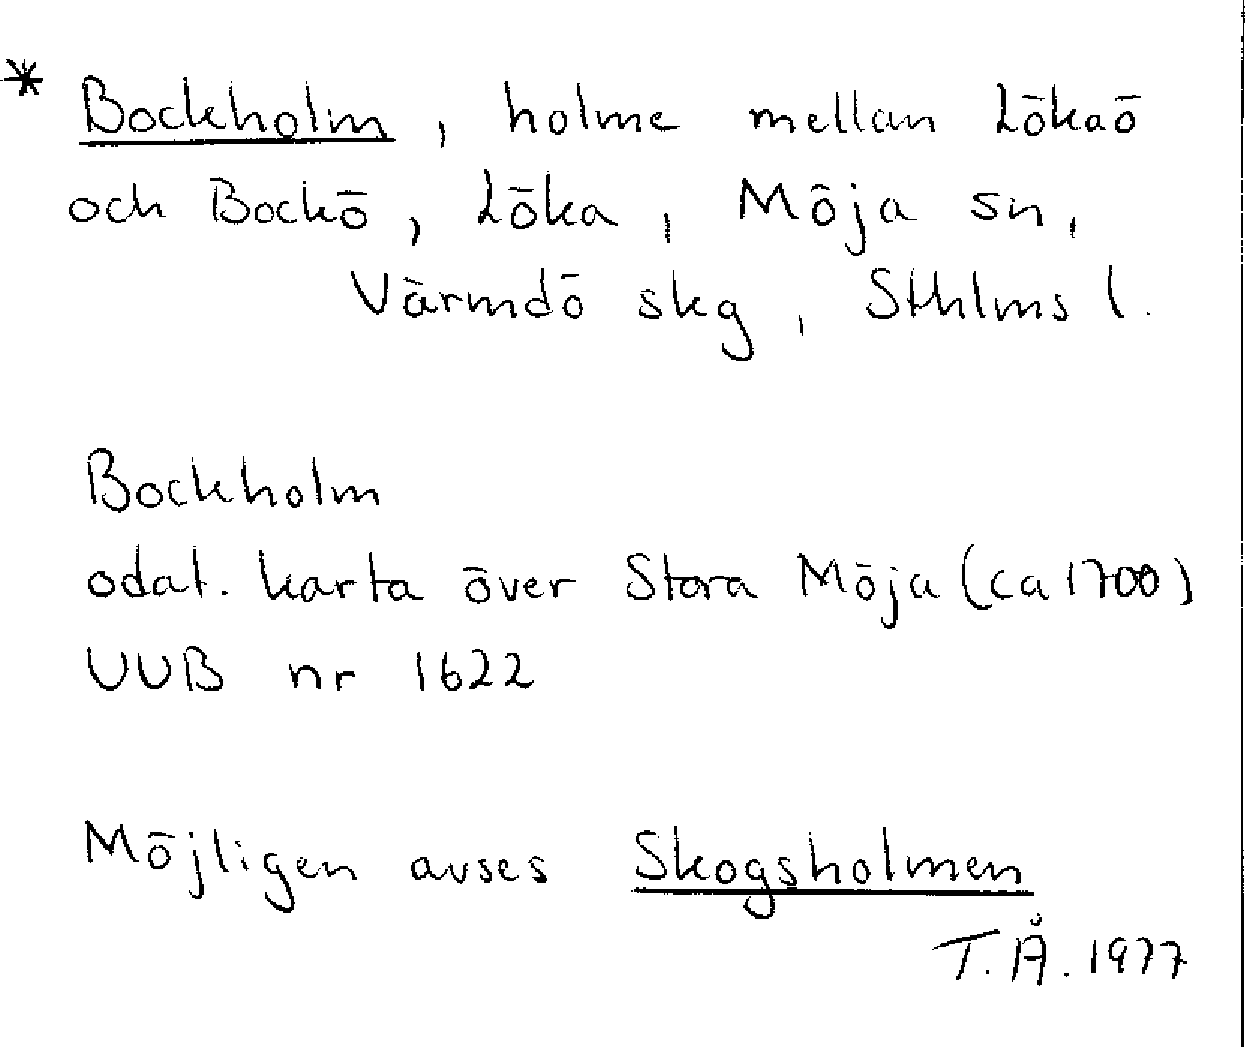 * Bockholm, holme mellan Lökaö
och Bockö, Löka, Möja sn,
Värmdö skg, Sthlms l.
Bockholm
odat. karta över Stora Möja (ca 1700)
UUB nr 1622
Möjligen avses Skogsholmen
T.Å. 1977